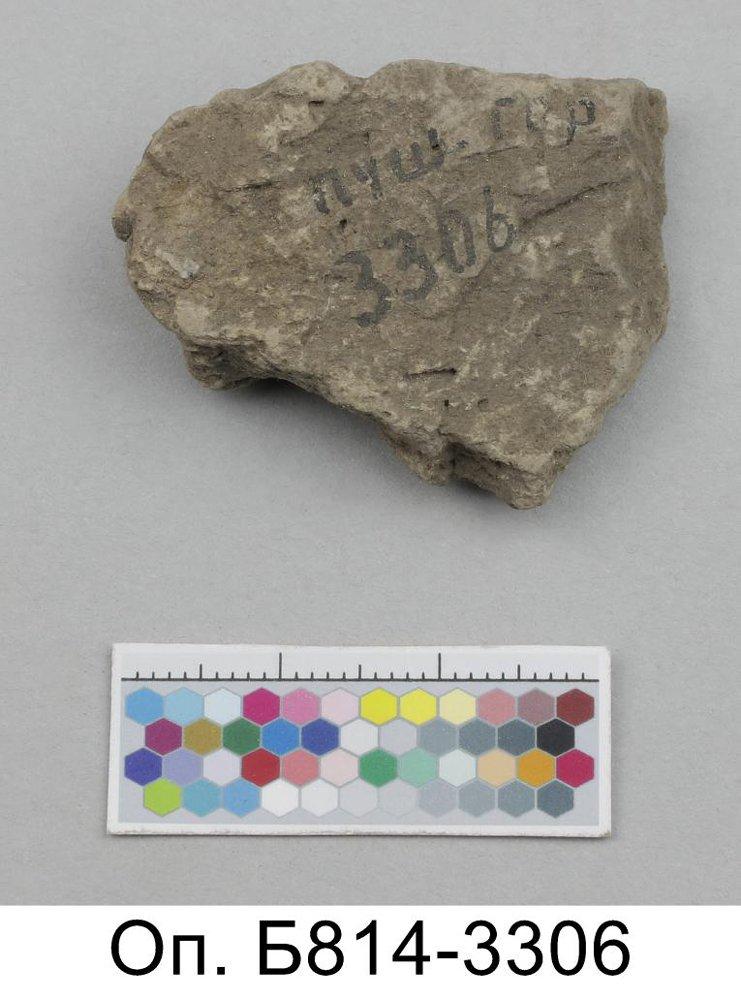 пуш. гор
3306
Оп. Б814-3306